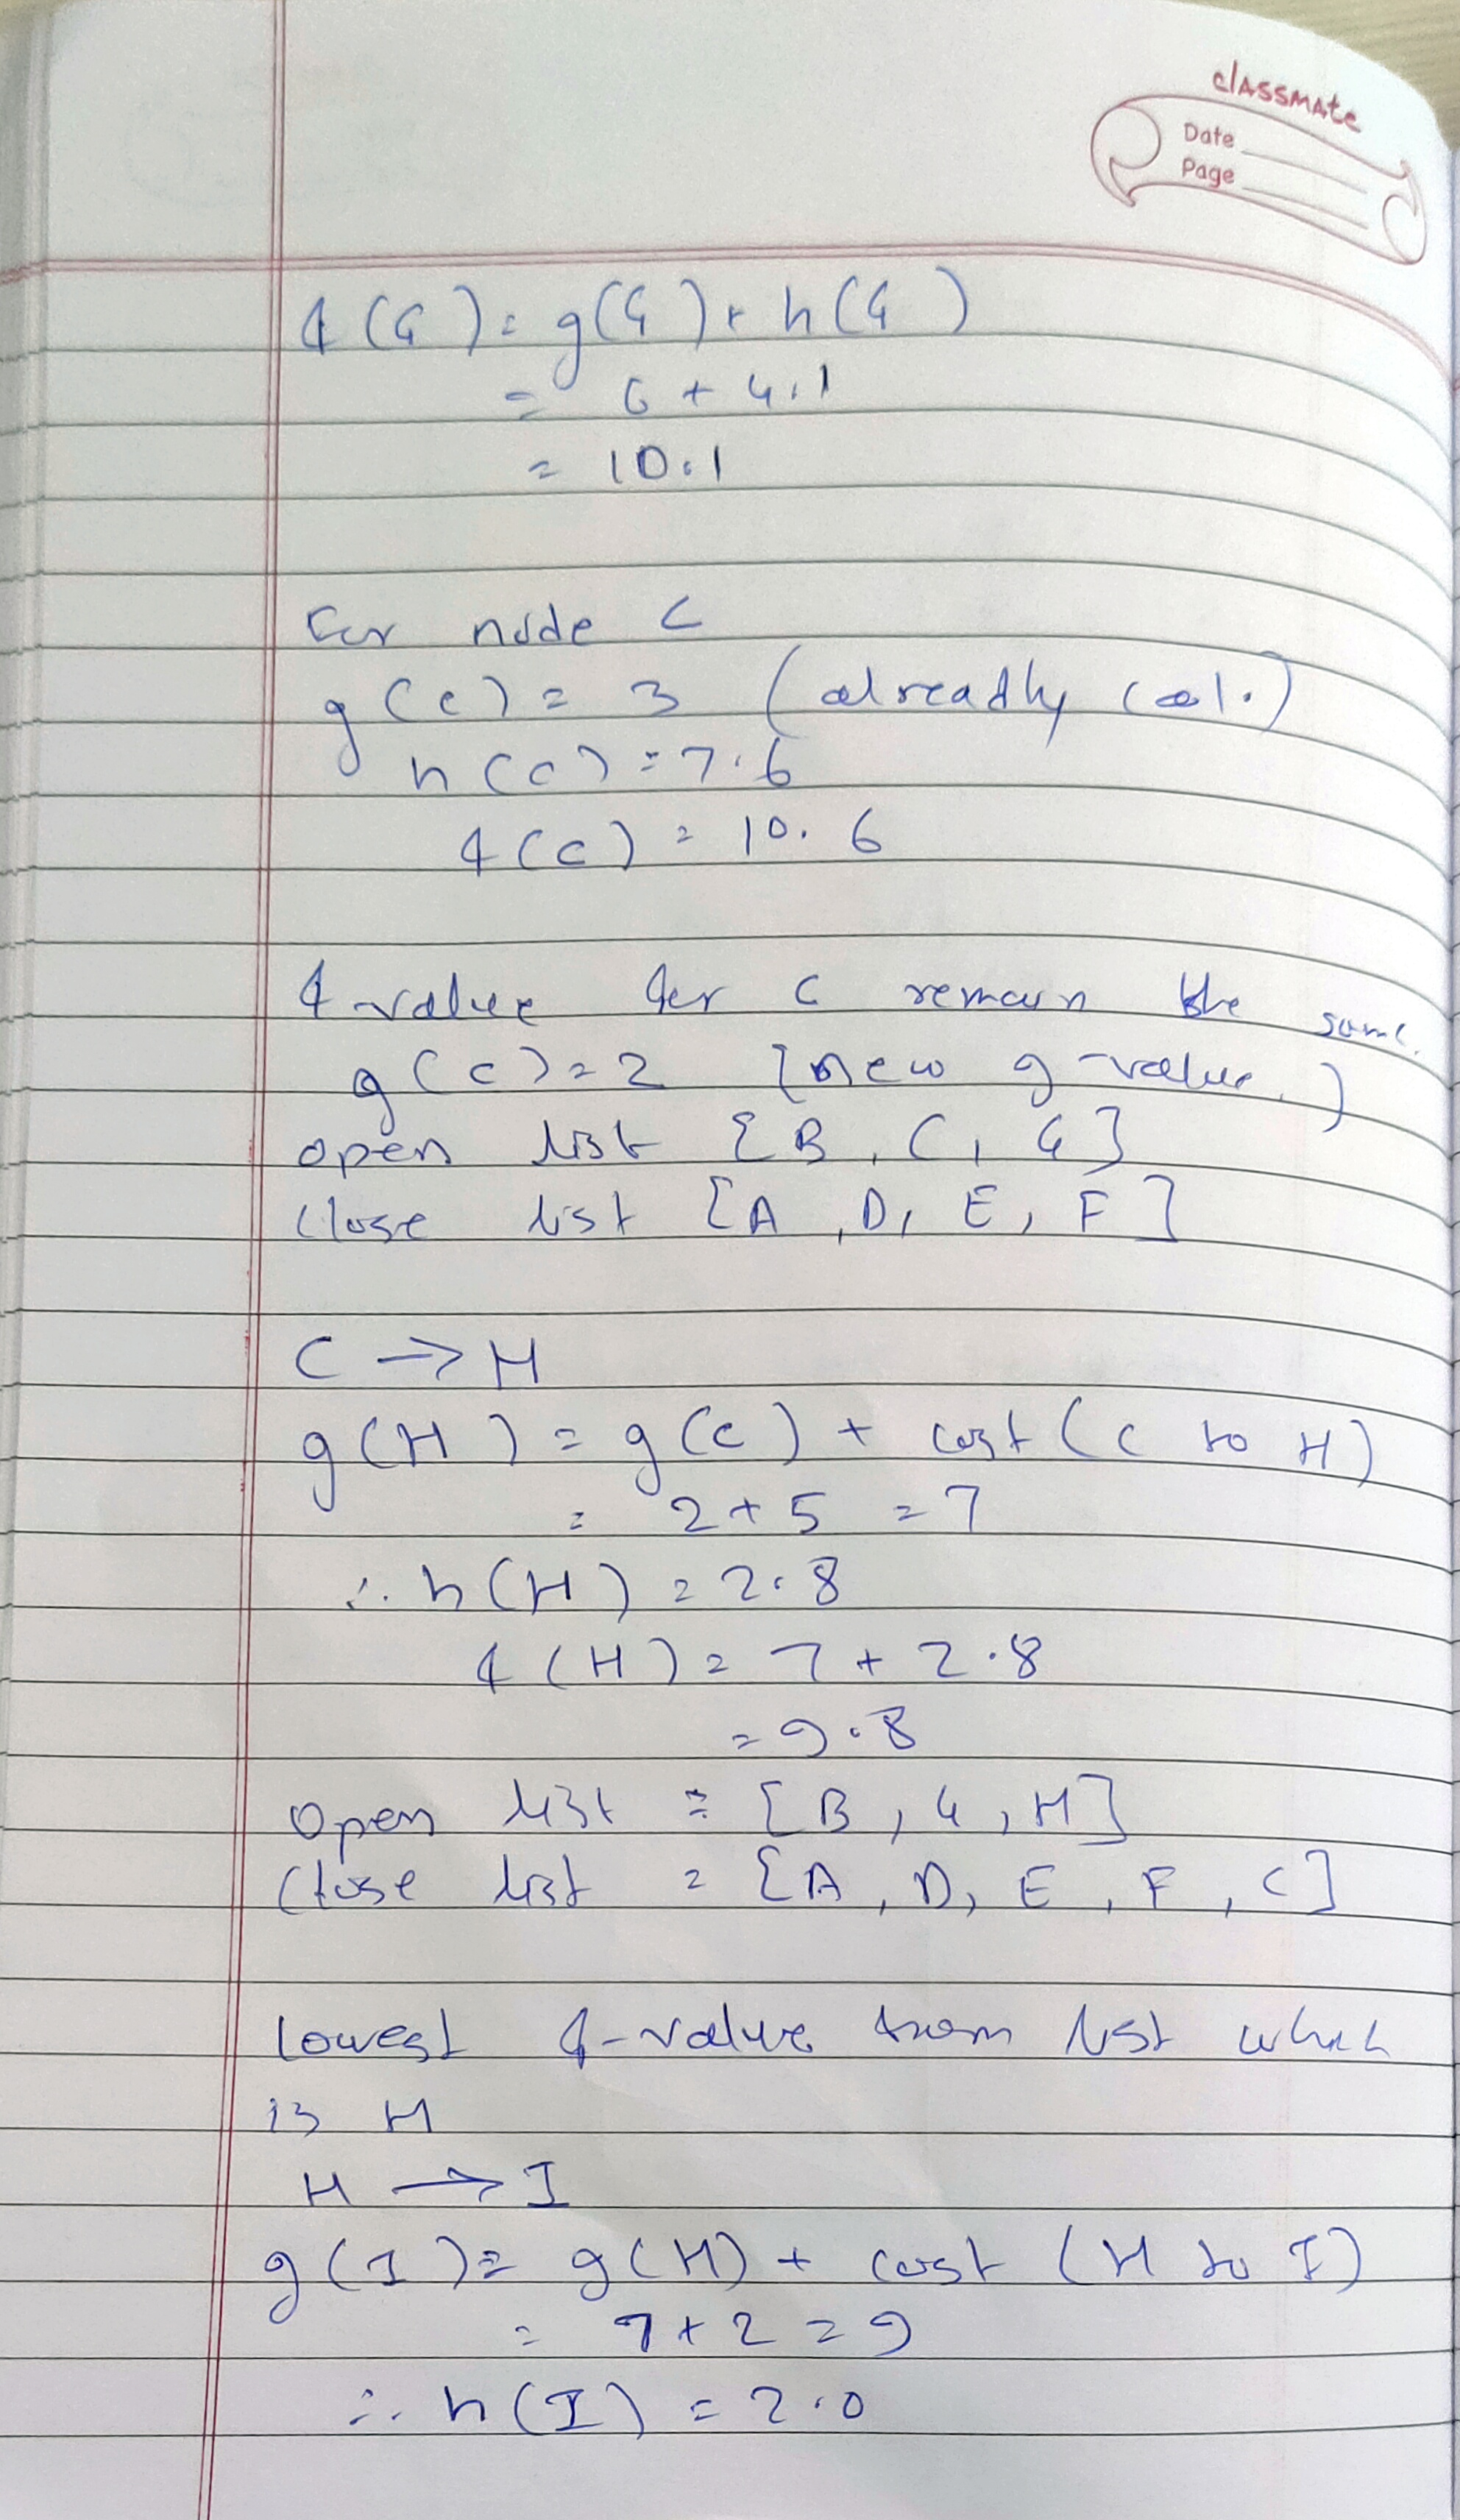 classmate
Date
Page
f(G) = g(G) + h(G)
= 6 + 4.1
= 10.1
For node C
g(c) = 3 (alreadly cal.)
h(c) = 7.6
f(c) = 10.6
f value for C remain the same.
g(c) = 2 [new g-value.)
open list [B, C, G]
Close list [A, D, E, F]
C → H
g(H) = g(c) + cost (c to H)
= 2 + 5 = 7
∴ h(H) = 2.8
f(H) = 7 + 2.8
= 9.8
Open list = [B, G, H]
Close list = [A, D, E, F, C]
Lowest f-value from list which
is H
H → I
g(I) = g(H) + cost (H to I)
= 7 + 2 = 9
∴ h(I) = 2.0